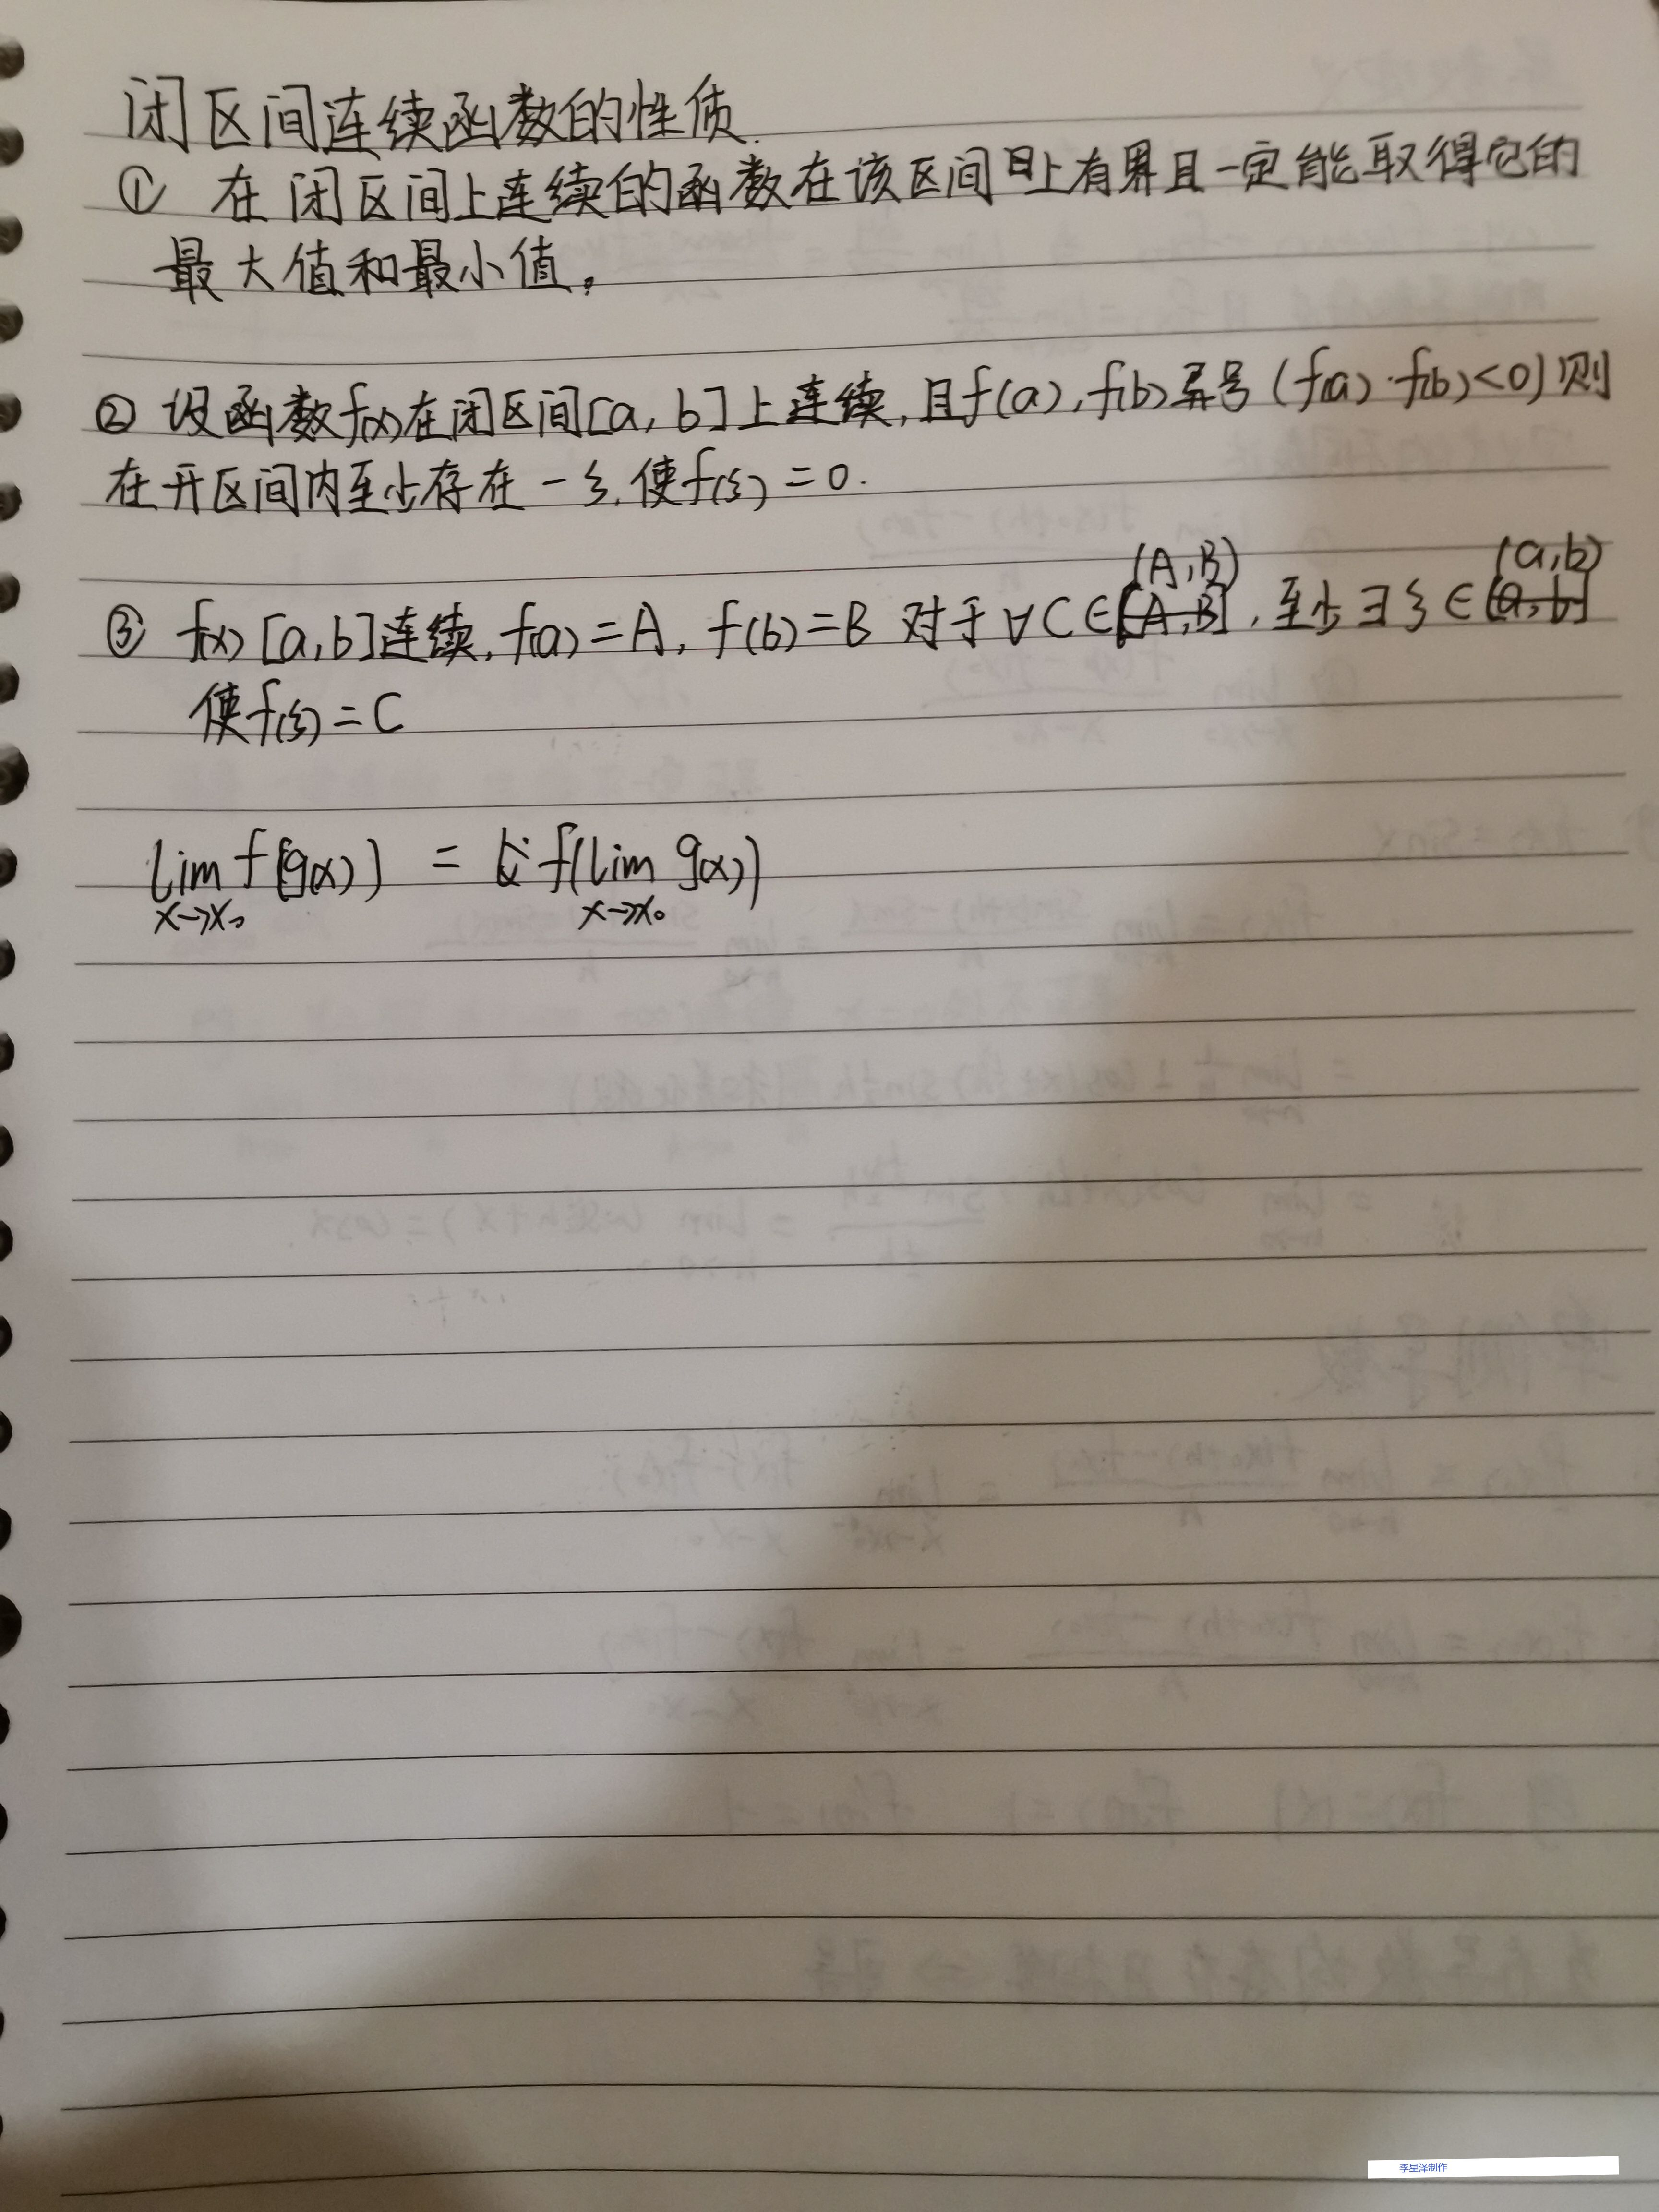 闭区间连续函数的性质.
① 在闭区间上连续的函数在该区间上有界且一定能取得它的
最大值和最小值。
② 设函数f(x)在闭区间[a, b]上连续,且f(a), f(b)异号(f(a)·f(b)<0)则
在开区间内至少存在一ξ,使f(ξ)=0.
(A,B) (a,b)
③ f(x) [a,b]连续, f(a)=A, f(b)=B 对于∀C∈[A,B], 至少∃ξ∈[a,b]
使f(ξ)=C
lim f[g(x)] = f(lim g(x))
x→x₀ x→x₀
李星泽制作